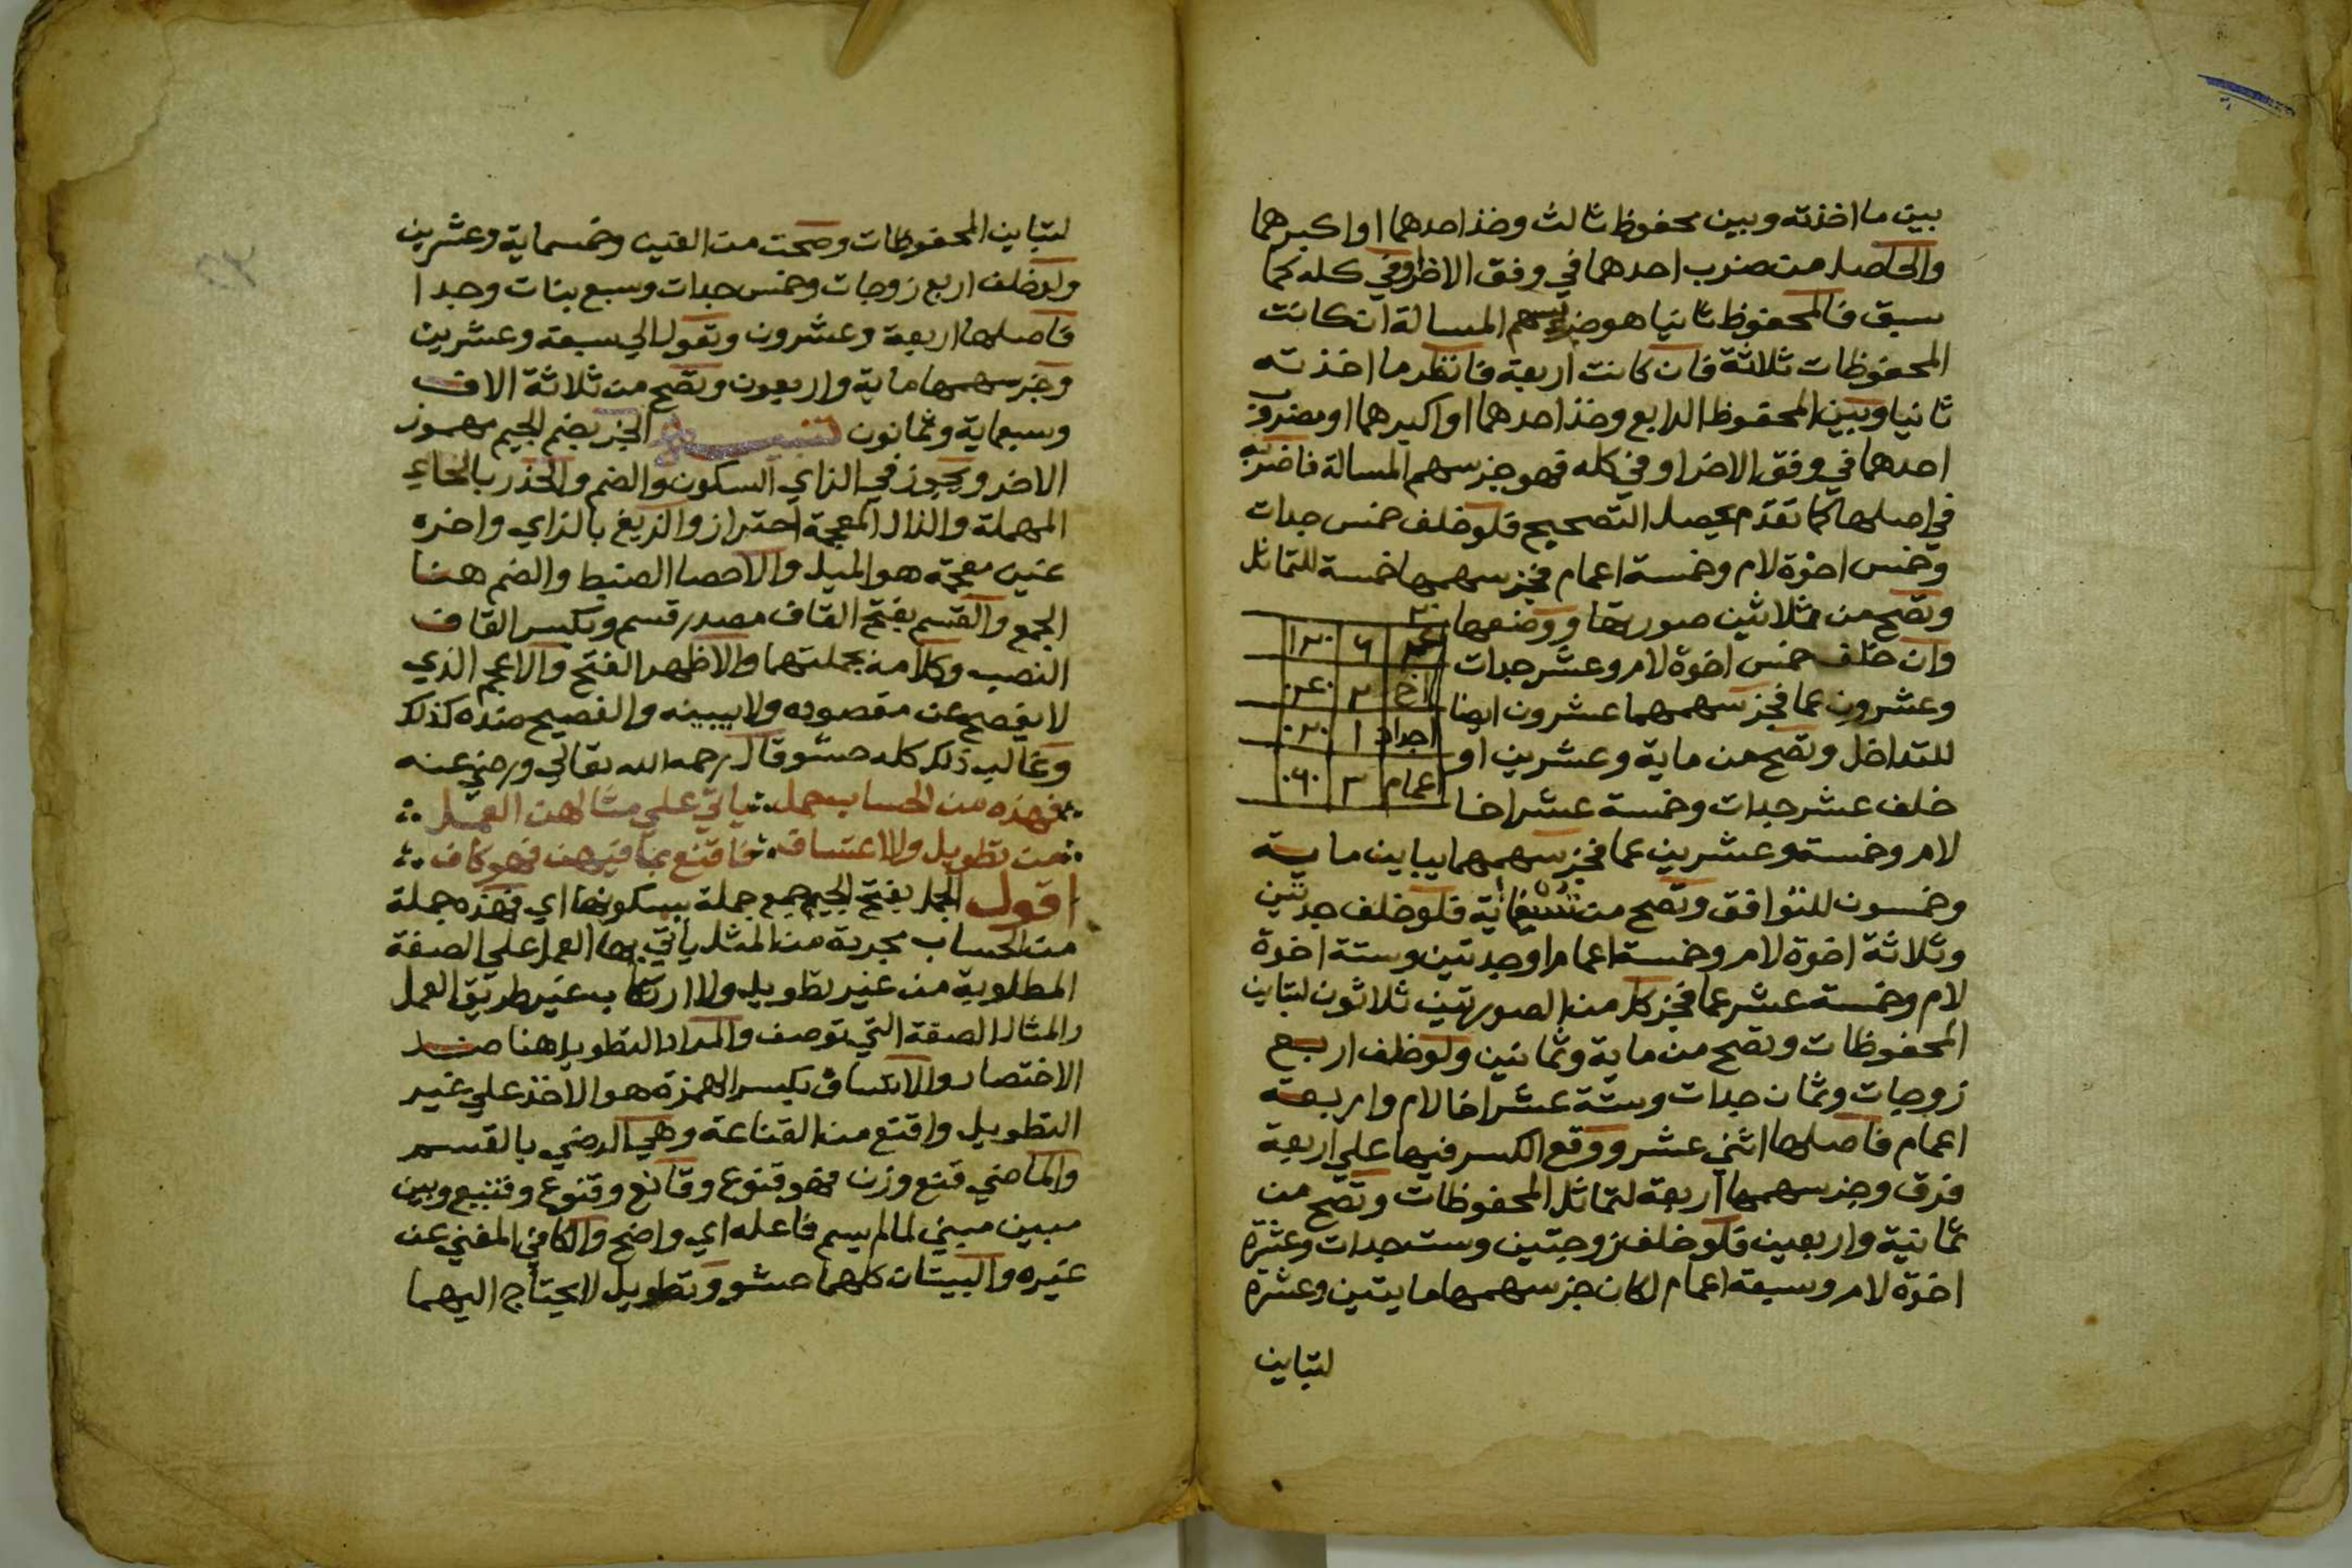 بين ما اخذته وبين محفوظ ثالث وخذ احدهما او اكبرهما
والحاصل من ضرب احدهما في وفق الاخر او في كله كما
سبق فالمحفوظ ثانيا هو جز سهم المسالة ان كانت
المحفوظات ثلاثة فان كانت اربعة فانظر ما اخذته
ثانيا وبين المحفوظ الرابع وخذ احدهما او اكبرهما او مضروب
احدهما في وفق الاخر او في كله فهو جز سهم المسالة فاضربه
في اصلها كما تقدم يحصل التصحيح فلو خلف خمس جدات
وخمس اخوة لام وخمسة اعمام فجز سهمها خمسة للتماثل
وتصح من ثلاثين صورتها ووضعها
وان خلف خمس اخوة لام وعشر جدات
وعشرون عما فجز سهمها عشرون ايضا
للتداخل وتصح من ماية وعشرين او
خلف عشر جدات وخمسة عشر اخا
٢٠
٦ ١٢٠
اخ ٢ ٠٤٠
اجداد ١ ٠٢٠
اعمام ٣ ٠٦٠
لام وخمسة وعشرين عما فجز سهمها يباين ماية
وخمسون للتوافق وتصح من تسعماية فلو خلف جدتين
وثلاثة اخوة لام وخمسة اعمام او جدتين وستة اخوة
لام وخمسة عشر عما فجز كل من الصورتين ثلاثون لتباين
المحفوظات وتصح من ماية وثمانين ولو خلف اربع
زوجات وثمان جدات وستة عشر اخا لام واربعة
اعمام فاصلها اثني عشر ووقع الكسر فيها علي اربعة
فرق وجز سهمها اربعة لتماثل المحفوظات وتصح من
ثمانية واربعين فلو خلف زوجتين وست جدات وعشرة
اخوة لام وسبعة اعمام لكان جز سهمها مايتين وعشرة
لتباين
لتباين المحفوظات وصحت من الفين وخمسماية وعشرين
ولو خلف اربع زوجات وخمس جدات وسبع بنات وجدا
فاصلها اربعة وعشرون وتعول الي سبعة وعشرين
وجز سهمها ماية واربعون وتصح من ثلاثة الاف
وسبعماية وثمانون تنبيه الجز بضم الجيم مهموز
الاخر ويجوز في الزاي السكون والضم والحذر بالحاء
المهملة والذال المعجمة احتراز والزيغ بالزاي واخره
غين معجمة هو الميل والاحصا الضبط والضم هنا
الجمع والقسم بفتح القاف مصدر قسم وبكسر القاف
النصيب وكلا منه يحملتهما والاظهر الفتح والاعجم الذي
لا يفصح عن مقصوده ولا يبينه والفصيح ضده كذلك
وغالب ذلك كله حشو قال رحمه الله تعالي ورضي عنه
فهذه من الحساب جمل ياتي علي مثالهن العمل
من تطويل ولا اعتساف فاقنع بما فيهن فهو كاف
اقول الجمل بفتح الجيم جمع جملة بسكونها اي فهذه جملة
من الحساب مجربة من المثل ياتي بها العمل علي الصفة
المطلوبة من غير تطويل ولا ارتكاب غير طريق العمل
والمثال الصفة التي توصف والمراد التطويل هنا ضد
الاختصار والاعتساف بكسر الهمزة هو الاخذ علي غير
التطويل واقنع من القناعة وهي الرضي بالقسم
والماضي قنع وزن فهو قنوع وقانع وقنوع وقنيع وبين
مبين مبني لما لم يسم فاعله اي واضح والكافي المغني عن
غيره والبيتان كلهما حشو وتطويل لا يحتاج اليهما